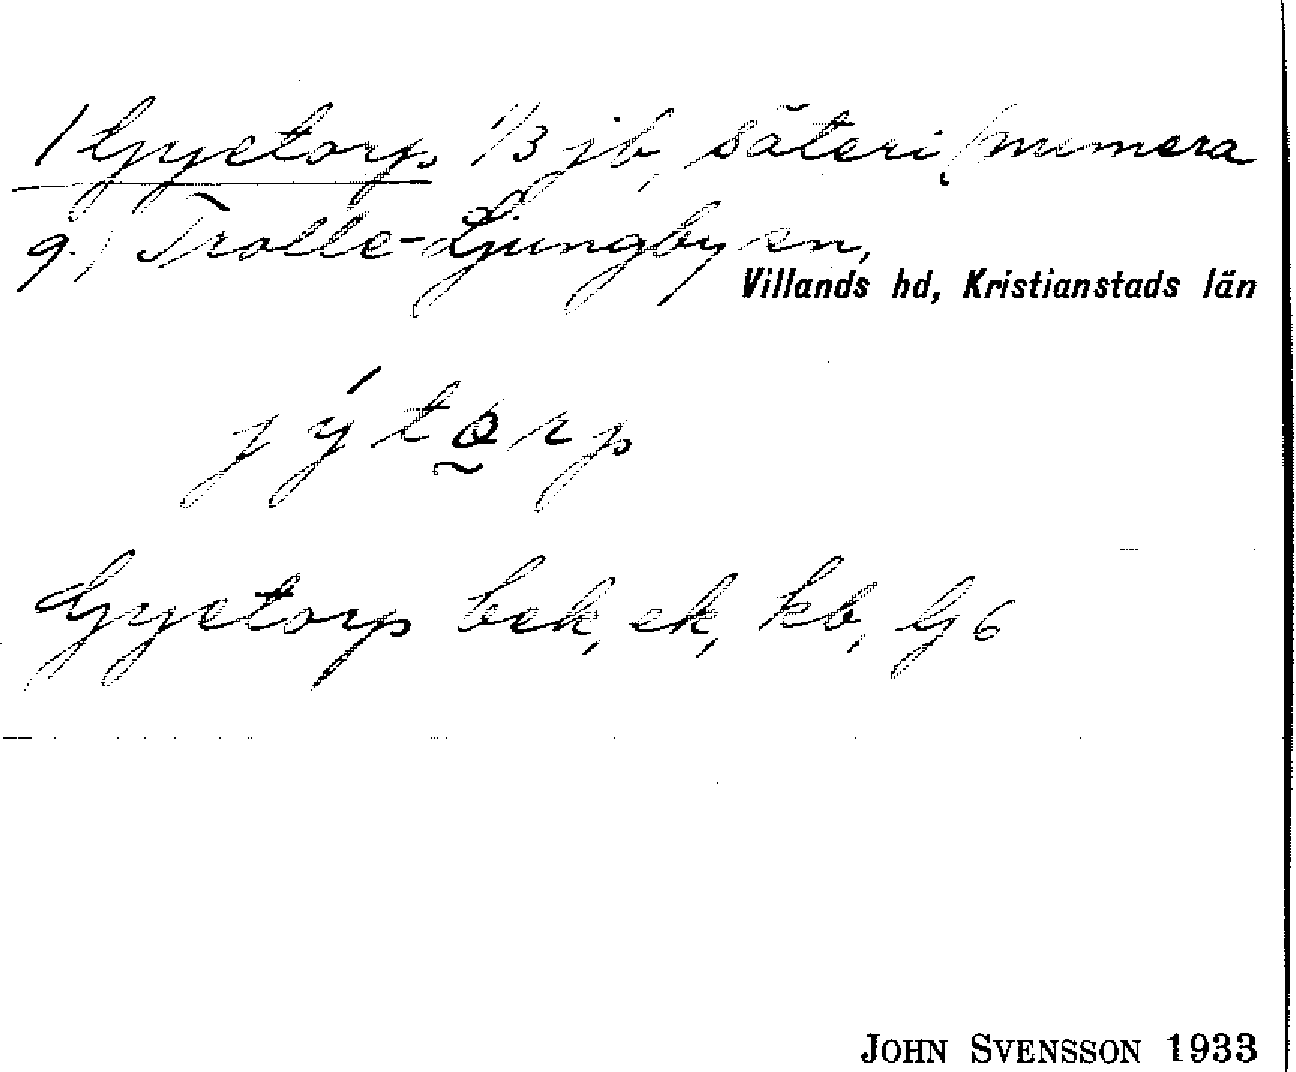 1 Gyetorp 1/3 jb, säteri, (numera
g.) Trolle-Ljungby sn,
Villands hd, Kristianstads län
jýtorp
Gyetorp bek, ek, kb, G6
JOHN SVENSSON 1933